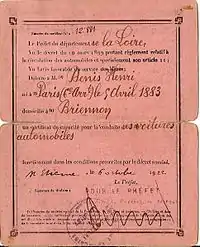 12.881
Le Préfet du département de la Loire,
Vu le décret du 10 mars 1899 portant règlement relatif à
la circulation des automobiles et spécialement son article 11;
Vu l'avis favorable du service des Mines;
Délivre à M. Denis Henri
né à Paris (6e Arrt) le 5 Avril 1883
domicilié à Briennon
un certificat de capacité pour la conduite de voitures
automobiles
fonctionnant dans les conditions prescrites par le décret susvisé.
St Etienne, le 6 octobre 1922
Le Préfet,
POUR LE PRÉFET